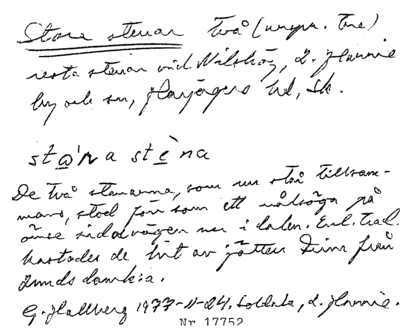 Stora stenar två (urspr. tre)
resta stenar vid Nilshög, Ö. Hoby
by och sn, Harjagers hd, Sk.
stǫ̀ra stę̀na
De två stenarna, som nu stå tillsam-
mans, stod förr som ett nålsöga på
ömse sidor vägen ner i dalen. Enl. trad.
kastades de hit av jätten Finn från
Lunds domk:a.
G. Hallberg 1977-11-24.
Nr 17752